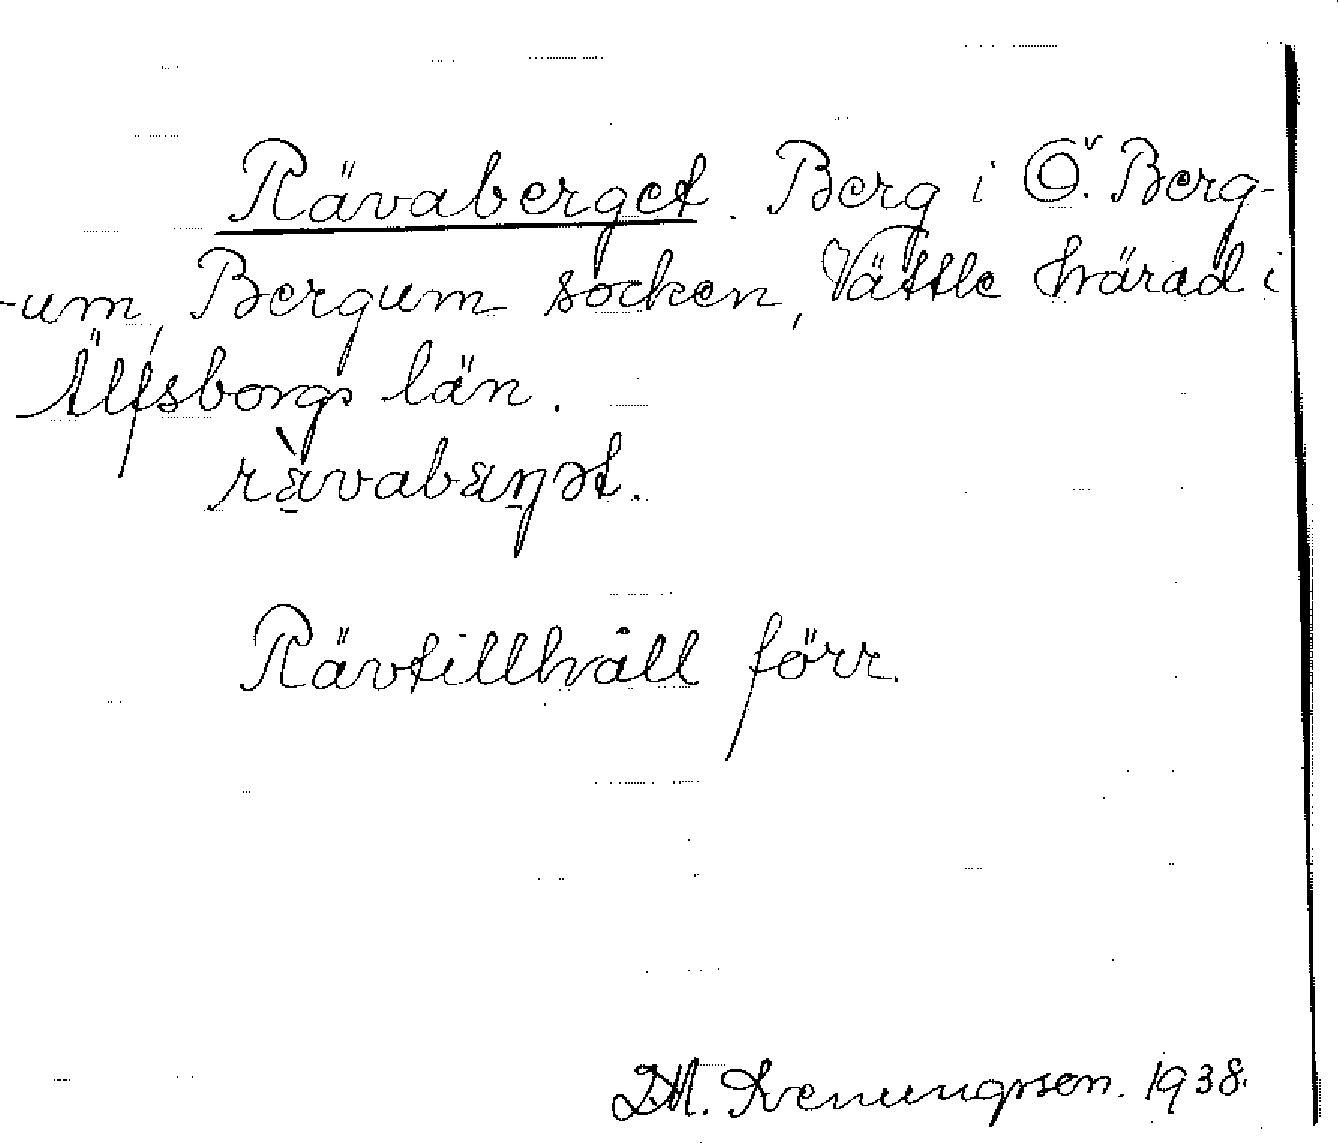 Rävaberget. Berg i Ö. Berg-
-um, Bergum socken, Vättle härad i
Älfsborgs län.
rævabæŋət.
Rävtillhåll förr.
1938.